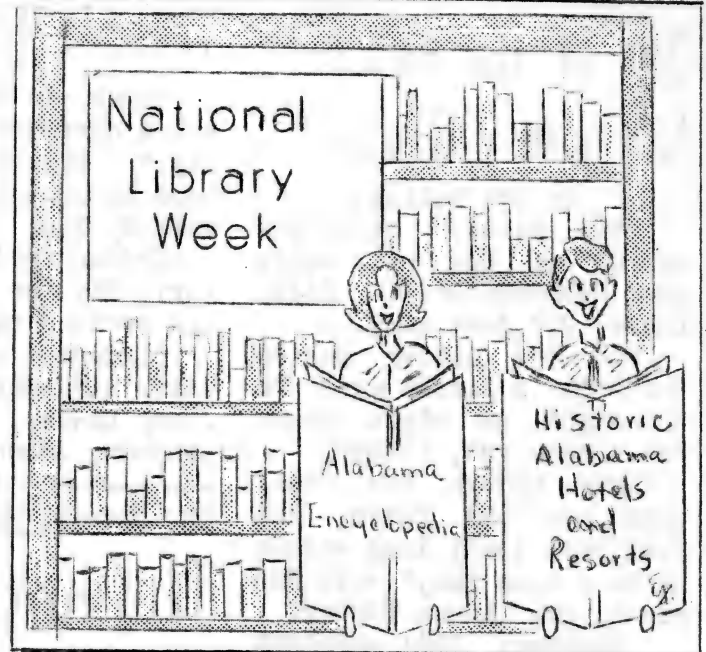 National
Library
Week
Alabama
Encyclopedia
Historic
Alabama
Hotels
and
Resorts